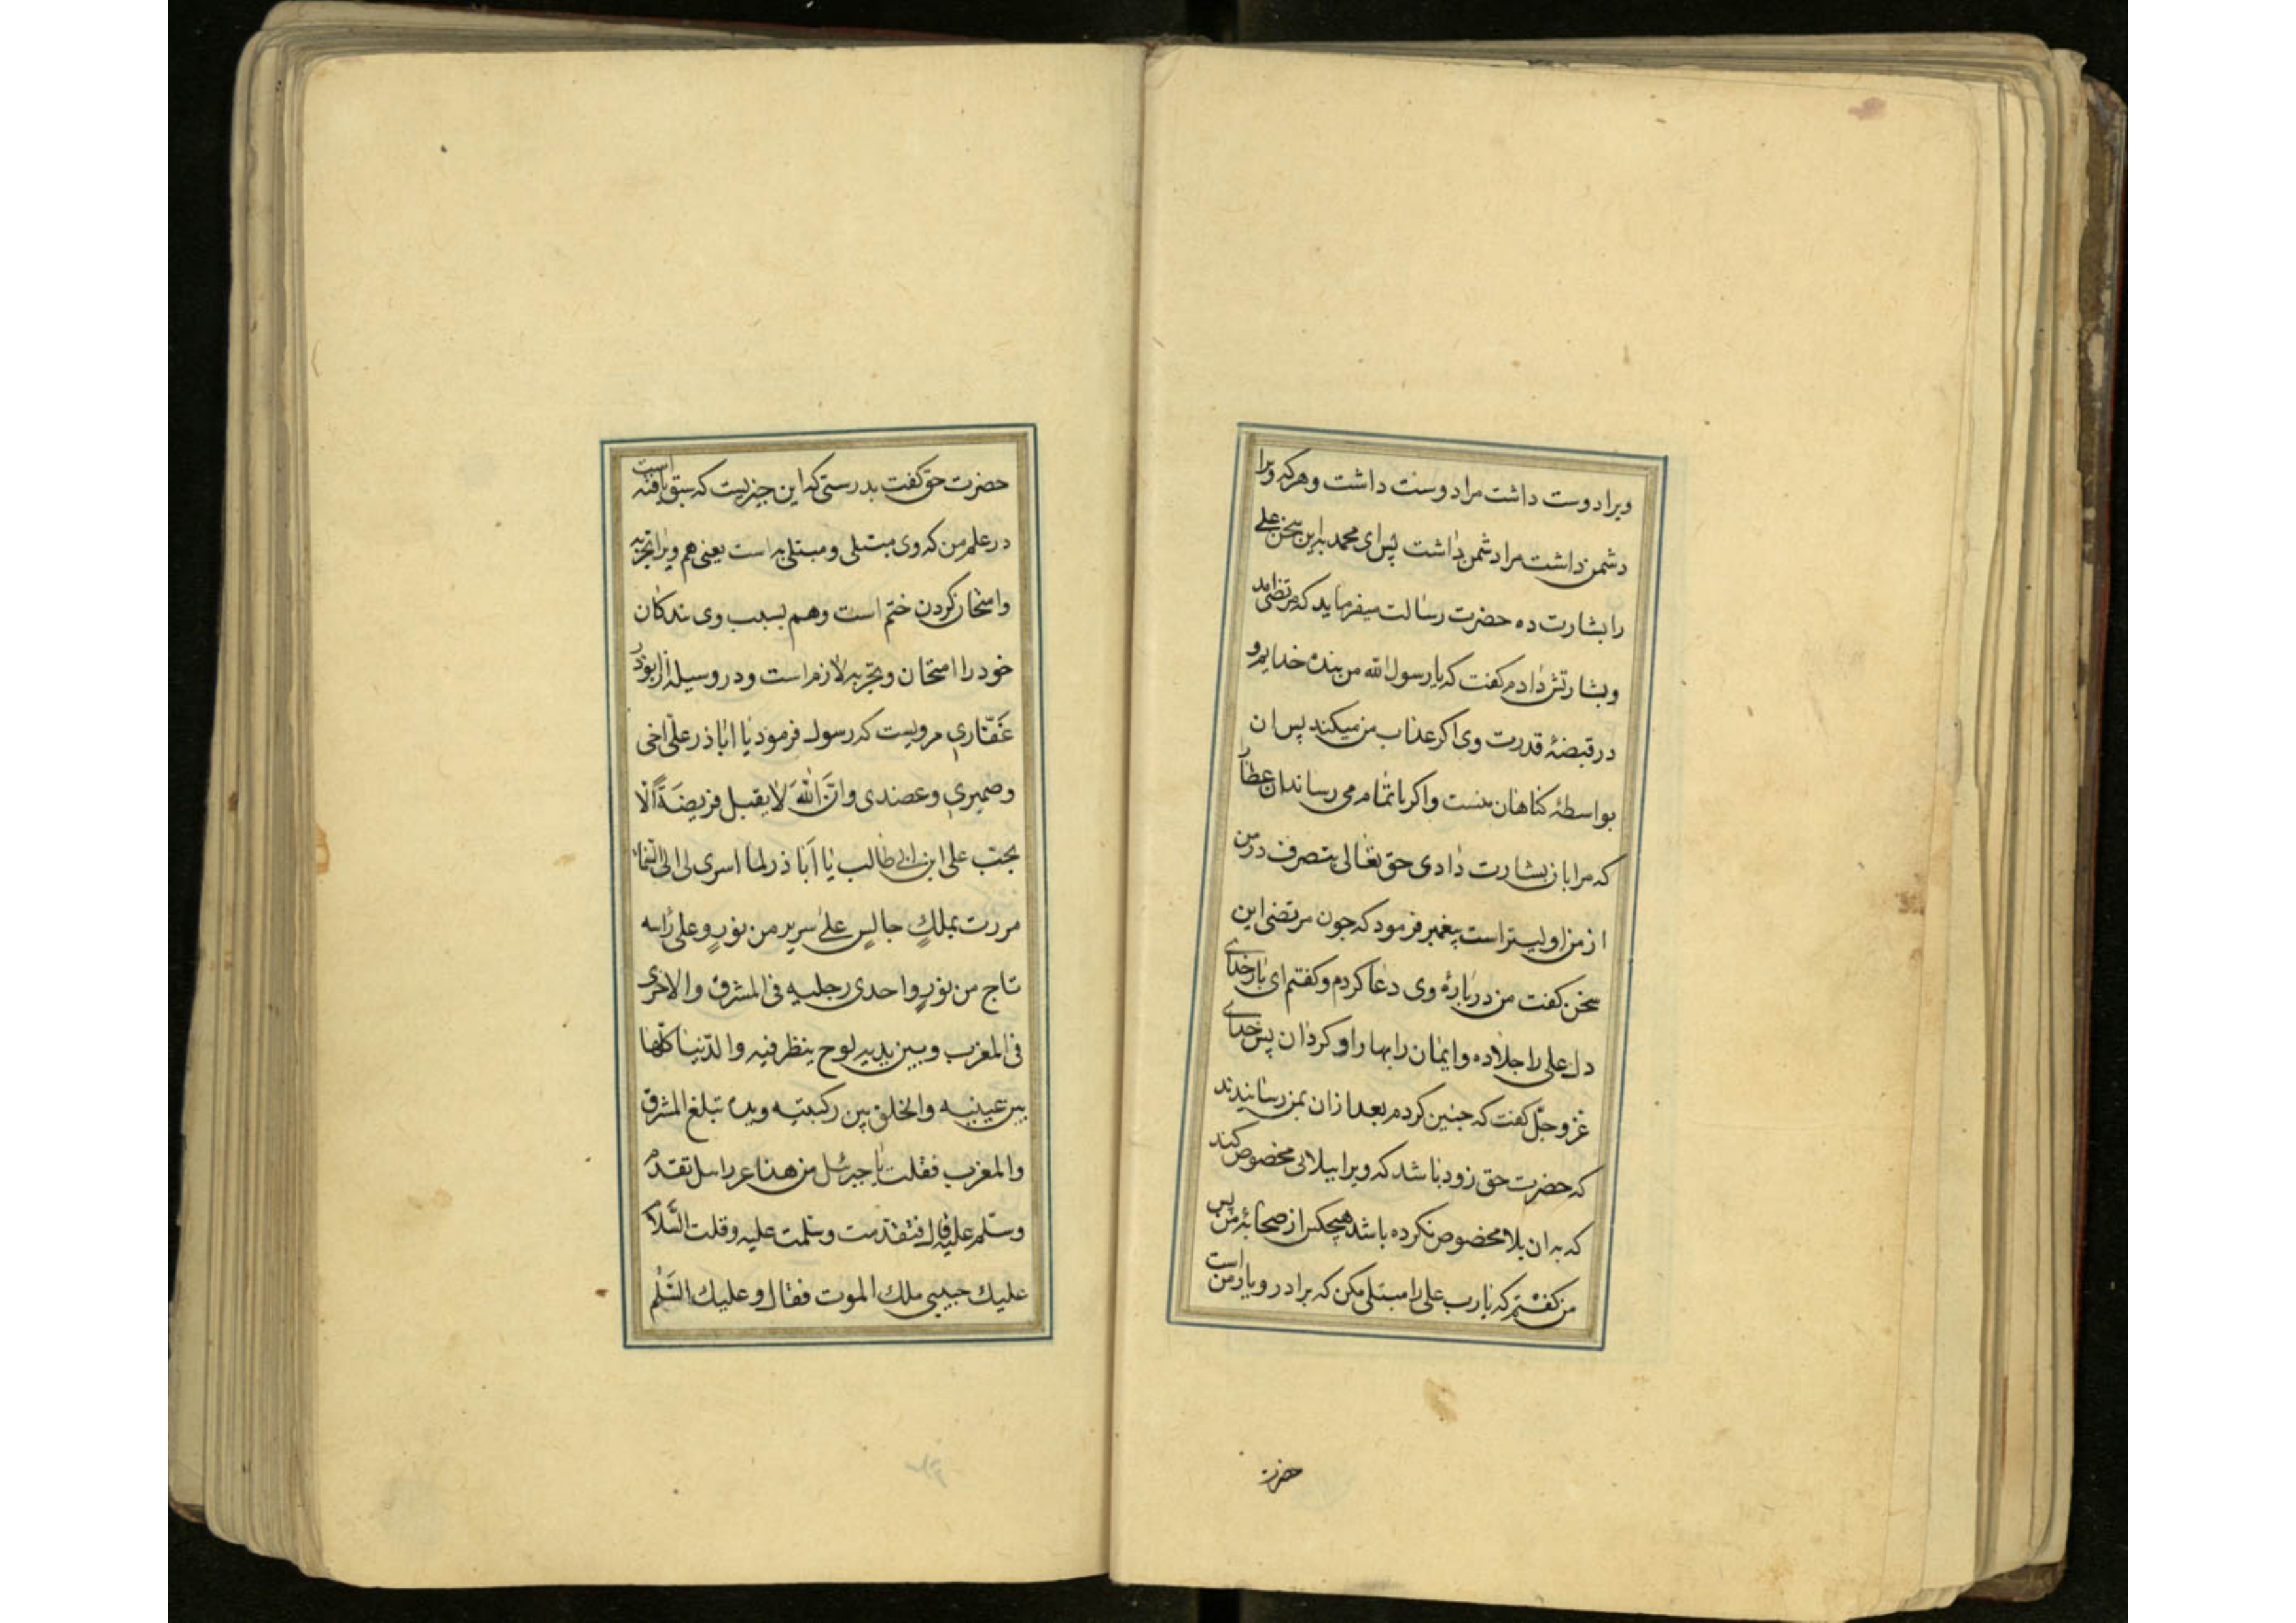 ویرا دوست داشت مرا دوست داشت و هرکه ویرا
دشمن داشت مرا دشمن داشت پس ای محمد باین سخن علی
را بشارت ده حضرت رسالت میفرماید که مرتضی امد
و بشارتش دادم کفت که یا رسول الله من بنده خدایم و
در قبضهٔ قدرت وی اکر عذاب من میکند پس ان
بواسطهٔ کناهان منست و اکر باتمام می رساند ان عطا را
که مرا بان بشارت دادی حق تعالی بتصرف در من
از من اولیتر است پیغمبر فرمود که جون مرتضی این
سخن کفت من در بارهٔ وی دعا کردم و کفتم ای بار خدای
دل علی را جلا ده و ایمان را بهار او کردان پس خدای
عز و جل کفت که جنین کردم بعد ازان بمن رسانیدند
که حضرت حق زود باشد که ویرا ببلائی مخصوص کند
که به ان بلا مخصوص نکرده باشد هیچکس از صحابهٔ من پس
من کفتم که یا رب علی را مبتلی مکن که برادر و یار من است
حضرت
حضرت حق کفت بدرستی که این جیزیست که سبق یافته است
در علم من که وی مبتلی و مبتلی به است یعنی هم ویرا تجربه
و امتحان کردن ختم است و هم بسبب وی بندکان
خود را امتحان و تجربه لازم است و در وسیله از ابوذر
غفّاری مرویست که رسول فرمود یا اباذر علی اخی
وضمیری وعضدی وانّ اللهَ لا یقبل فریضَةً الّا
بحبّ علی ابن ابی طالب یا اَبا ذر لما اسری لی الی السّماء
مررت بملكٍ جالسٍ علی سریر من نورٍ وعلی رأسه
تاج من نورٍ واحدی رجلیه فی المشرق والاخری
فی المغرب وبین یدیه لوح ینظر فیه والدّنیا کلّها
بین عینیه والخلق بین رکبتیه ویده تبلغ المشرق
والمغرب فقلت یا جبرئیل من هذا عزرائیل تقدّم
وسلّم علیه قال فتقدّمت وسلّمت علیه وقلت السّلام
علیك حبیبی ملك الموت فقال وعلیك السَّلٰم